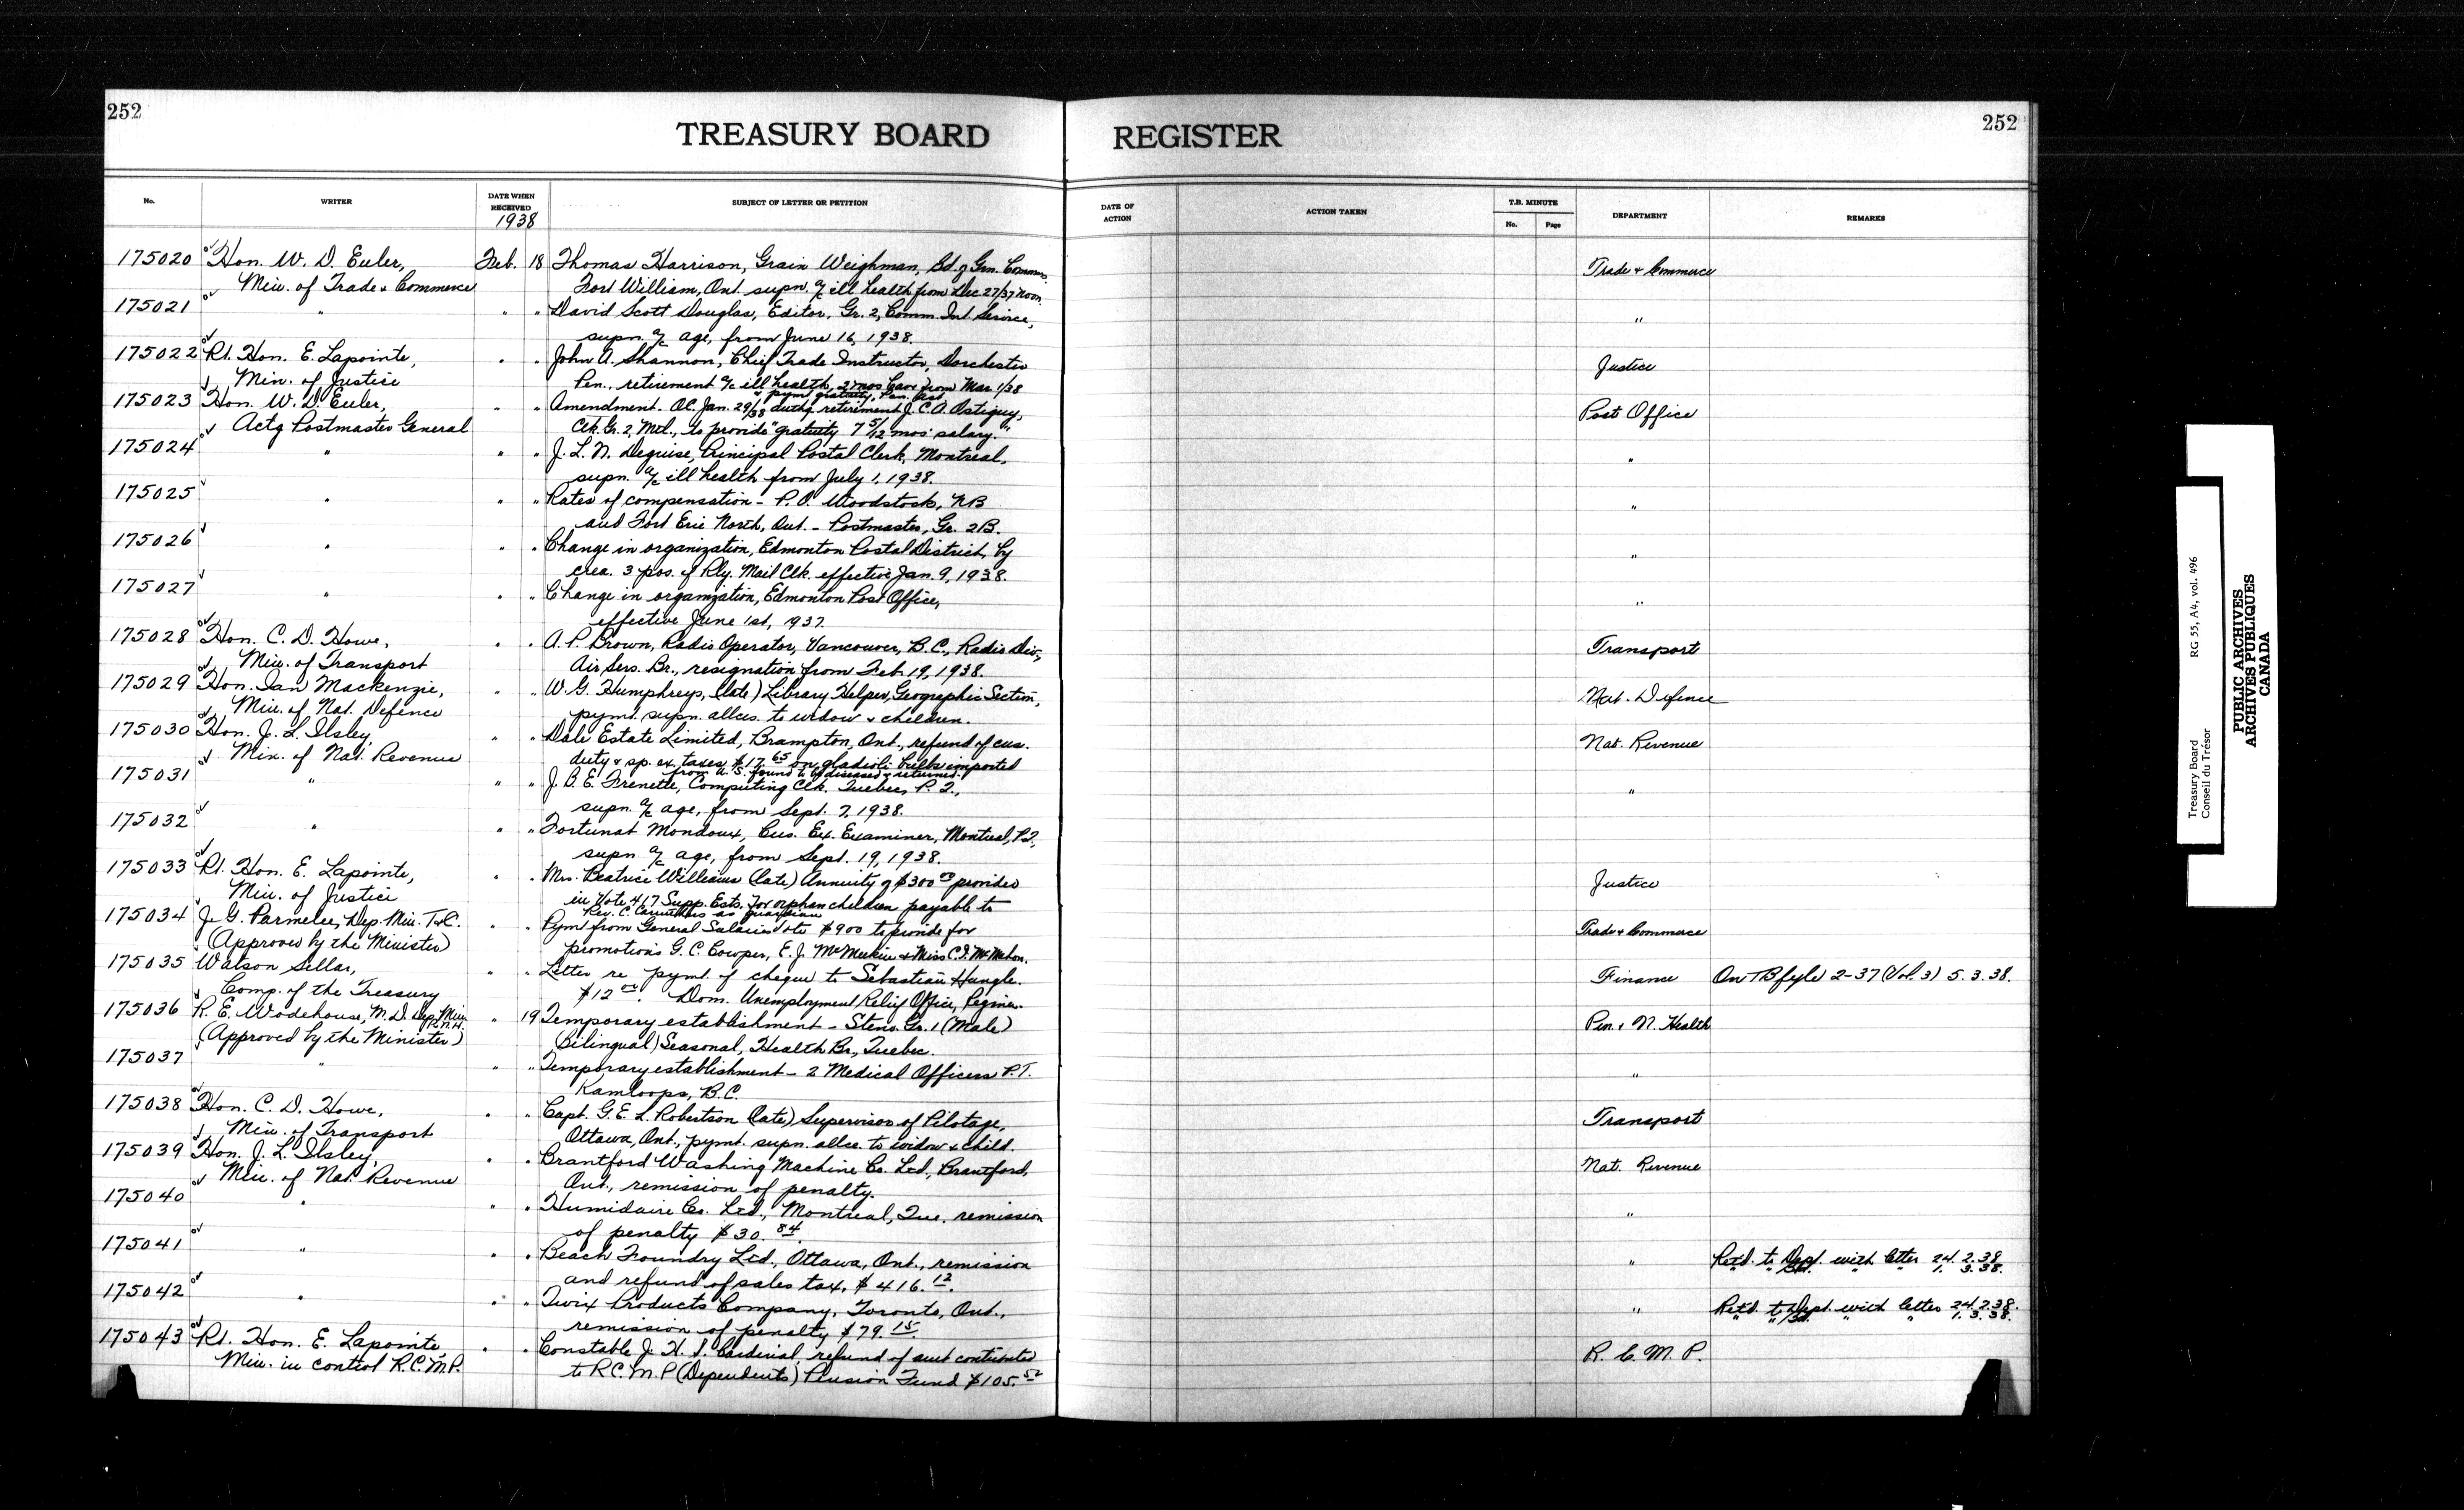 252
252
TREASURY BOARD REGISTER
No. WRITER DATE WHEN RECEIVED SUBJECT OF LETTER OR PETITION DATE OF ACTION ACTION TAKEN T.B. MINUTE No. Page DEPARTMENT REMARKS
1938
175020 Hon. W. D. Euler, Feb. 18 Thomas Harrison, Grain Weighman, Bd. of Grn. Commrs. Trade & Commerce
Min. of Trade & Commerce Fort William, Ont. supn. a/c ill health from Dec 27/37 noon.
175021 " " " David Scott Douglas, Editor, Gr. 2, Comm. Int. Service, "
supn. a/c age, from June 16, 1938.
175022 Rt. Hon. E. Lapointe, " " John A. Shannon, Chief Trade Instructor, Dorchester Justice
Min. of Justice Pen., retirement a/c ill health, 2 mos leave from Mar 1/38
& pym gratuity, Pen. Act
175023 Hon. W. D. Euler, " " Amendment. OC. Jan. 29/38 authg retirement J. C. A. Ostiguy, Post Office
Actg Postmaster General Clk. Gr. 2, Mtl., to provide "gratuity 7 5/12 mos' salary."
175024 " " " J. L. N. Deguise, Principal Postal Clerk, Montreal, "
supn. a/c ill health from July 1, 1938.
175025 " " " Rates of compensation - P.O. Woodstock, NB "
and Fort Erie North, Ont. - Postmaster, Gr. 2B.
175026 " " " Change in organization, Edmonton Postal District, by "
crea. 3 pos. of Rly. Mail Clk. effective Jan. 9, 1938.
175027 " " " Change in organization, Edmonton Post Office, "
effective June 1st, 1937.
175028 Hon. C. D. Howe, " " A. P. Brown, Radio Operator, Vancouver, B.C., Radio Div., Transport
Min. of Transport Air Serv. Br., resignation from Feb. 19, 1938.
175029 Hon. Ian Mackenzie, " " W. G. Humphreys, (late) Library Helper, Geographic Section, Nat. Defence
Min. of Nat. Defence pymt. supn. allces. to widow & children.
175030 Hon. J. L. Ilsley, " " Dale Estate Limited, Brampton, Ont., refund of cus. Nat. Revenue
Min. of Nat. Revenue duty & sp. ex. taxes $17.65 on gladioli bulbs imported
from U.S. found to be diseased & returned.
175031 " " " J. B. E. Frenette, Computing Clk. Quebec, P.Q., "
supn. a/c age, from Sept. 7, 1938.
175032 " " " Fortunat Mondoux, Cus. Ex. Examiner, Montreal, P.Q.,
supn. a/c age, from Sept. 19, 1938.
175033 Rt. Hon. E. Lapointe, " " Mrs. Beatrice Williams (late) Annuity of $300 provided Justice
Min. of Justice in Vote 417 Supp. Ests. for orphan children payable to
Rev. C. Carruthers as guardian
175034 J. G. Parmelee, Dep. Min. T & C. " Pym from General Salaries Vote $900 to provide for Trade & Commerce
(Approved by the Minister) promotions G. C. Cowper, E. J. McMeekin & Miss C. I. McMahon.
175035 Watson Sellar, " " Letter re pymt. of cheque to Sebastian Hungle. Finance On TB fyle 2-37 (Vol. 3) 5.3.38.
Comp. of the Treasury $12. Dom. Unemployment Relief Office, Regina.
175036 R. E. Wodehouse, M.D. Dep. Min. P. N. H. " 19 Temporary establishment - Steno. Gr. 1 (Male) Pen. & N. Health
(Approved by the Minister) (Bilingual) Seasonal, Health Br., Quebec.
175037 " " " Temporary establishment - 2 Medical Officers P.T. "
Kamloops, B.C.
175038 Hon. C. D. Howe, " " Capt. G. E. L. Robertson (late) Supervisor of Pilotage, Transport
Min. of Transport Ottawa, Ont., pymt. supn. allce. to widow & child.
175039 Hon. J. L. Ilsley, " " Brantford Washing Machine Co. Ltd., Brantford, Nat. Revenue
Min. of Nat. Revenue Ont., remission of penalty.
175040 " " " Humidaire Co. Ltd., Montreal, Que. remission "
of penalty $30.84.
175041 " " " Beach Foundry Ltd., Ottawa, Ont., remission " Retd. to Dept. with letter 24.2.38
and refund of sales tax, $416.12. " " " " 1.3.38.
175042 " " " Twix Products Company, Toronto, Ont., " Retd. to Dept. with letter 24.2.38.
remission of penalty $79.15. " " " " 1.3.38.
175043 Rt. Hon. E. Lapointe, " " Constable J. H. I. Cardinal, refund of amt contributed R. C. M. P.
Min. in control R.C.M.P. to R.C.M.P (Dependents) Pension Fund $105.52
Treasury Board RG 55, A4, vol. 496
Conseil du Trésor
PUBLIC ARCHIVES
ARCHIVES PUBLIQUES
CANADA